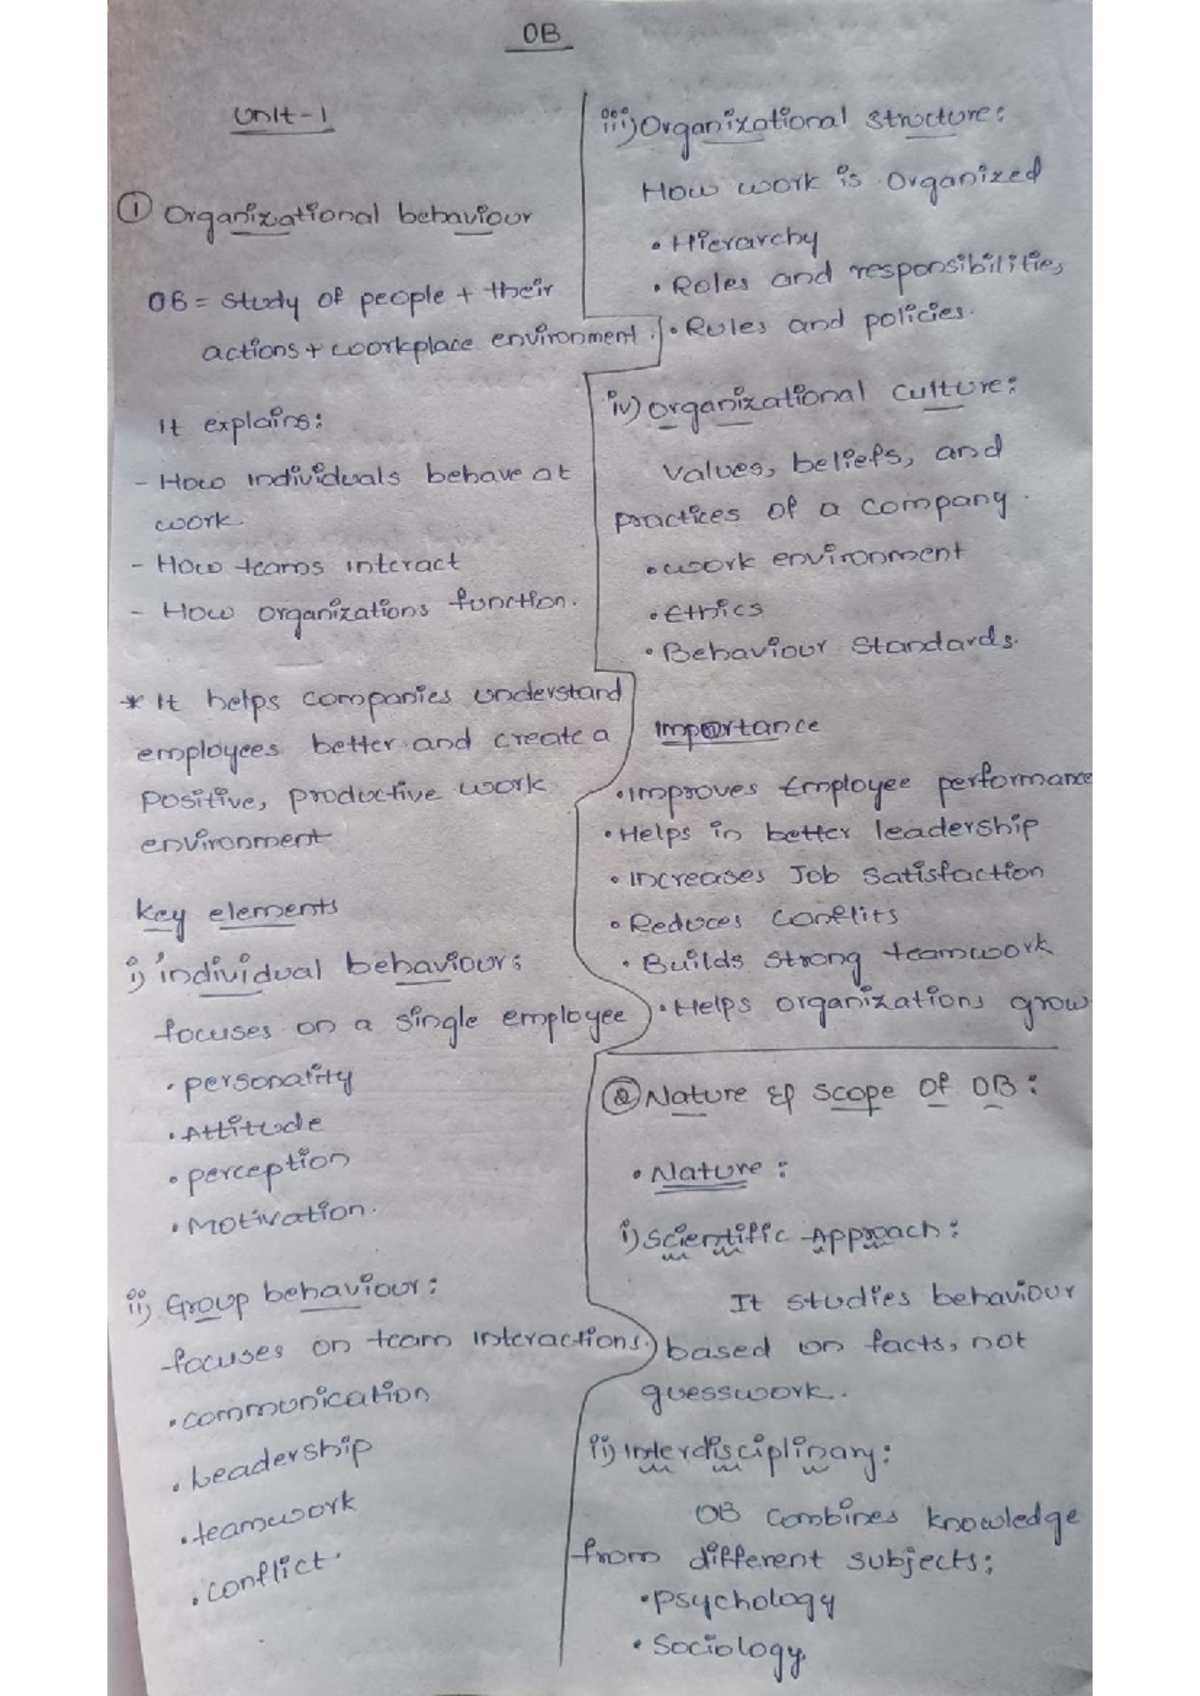 OB
Unit-1
① Organizational behaviour
OB = study of people + their
actions + workplace environment.
It explains:
- How individuals behave at
work
- How teams interact
- How organizations function.
* It helps companies understand
employees better and create a
Positive, productive work
environment
Key elements
i) individual behaviour:
focuses on a single employee
• personality
• Attitude
• perception
• Motivation.
ii) Group behaviour:
focuses on team interactions.
• communication
• Leadership
• teamwork
• conflict.
iii) Organizational structure:
How work is Organized
• Hierarchy
• Roles and responsibilities
• Rules and policies.
iv) Organizational culture:
Values, beliefs, and
practices of a company.
• work environment
• Ethics
• Behaviour Standards.
Importance
• Improves Employee performance
• Helps in better leadership
• Increases Job Satisfaction
• Reduces Conflits
• Builds Strong teamwork
• Helps organizations grow
② Nature & Scope Of OB:
• Nature:
i) Scientific Approach:
It studies behaviour
based on facts, not
guesswork.
ii) Interdisciplinary:
OB Combines knowledge
from different subjects:
• Psychology
• Sociology